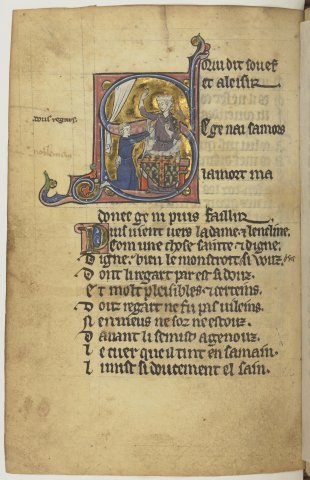 douz regars.
douz dit souef
et a leisir
Se ge nai samors
la mort ma
donee ge ni puis faillir
Puis vient vers la dame & lencline
Com une chose sainte & digne.
Digne. bien le monstrot si douz
Douz regart par est si douz.
Et molt plesibles & certeins.
Douz regart ne fu pas vileins.
Ne envieus ne sor ne estouz.
Davant li se mist a genouz.
Le cuer que il tint en sa main.
Li mist si doucement el sain.